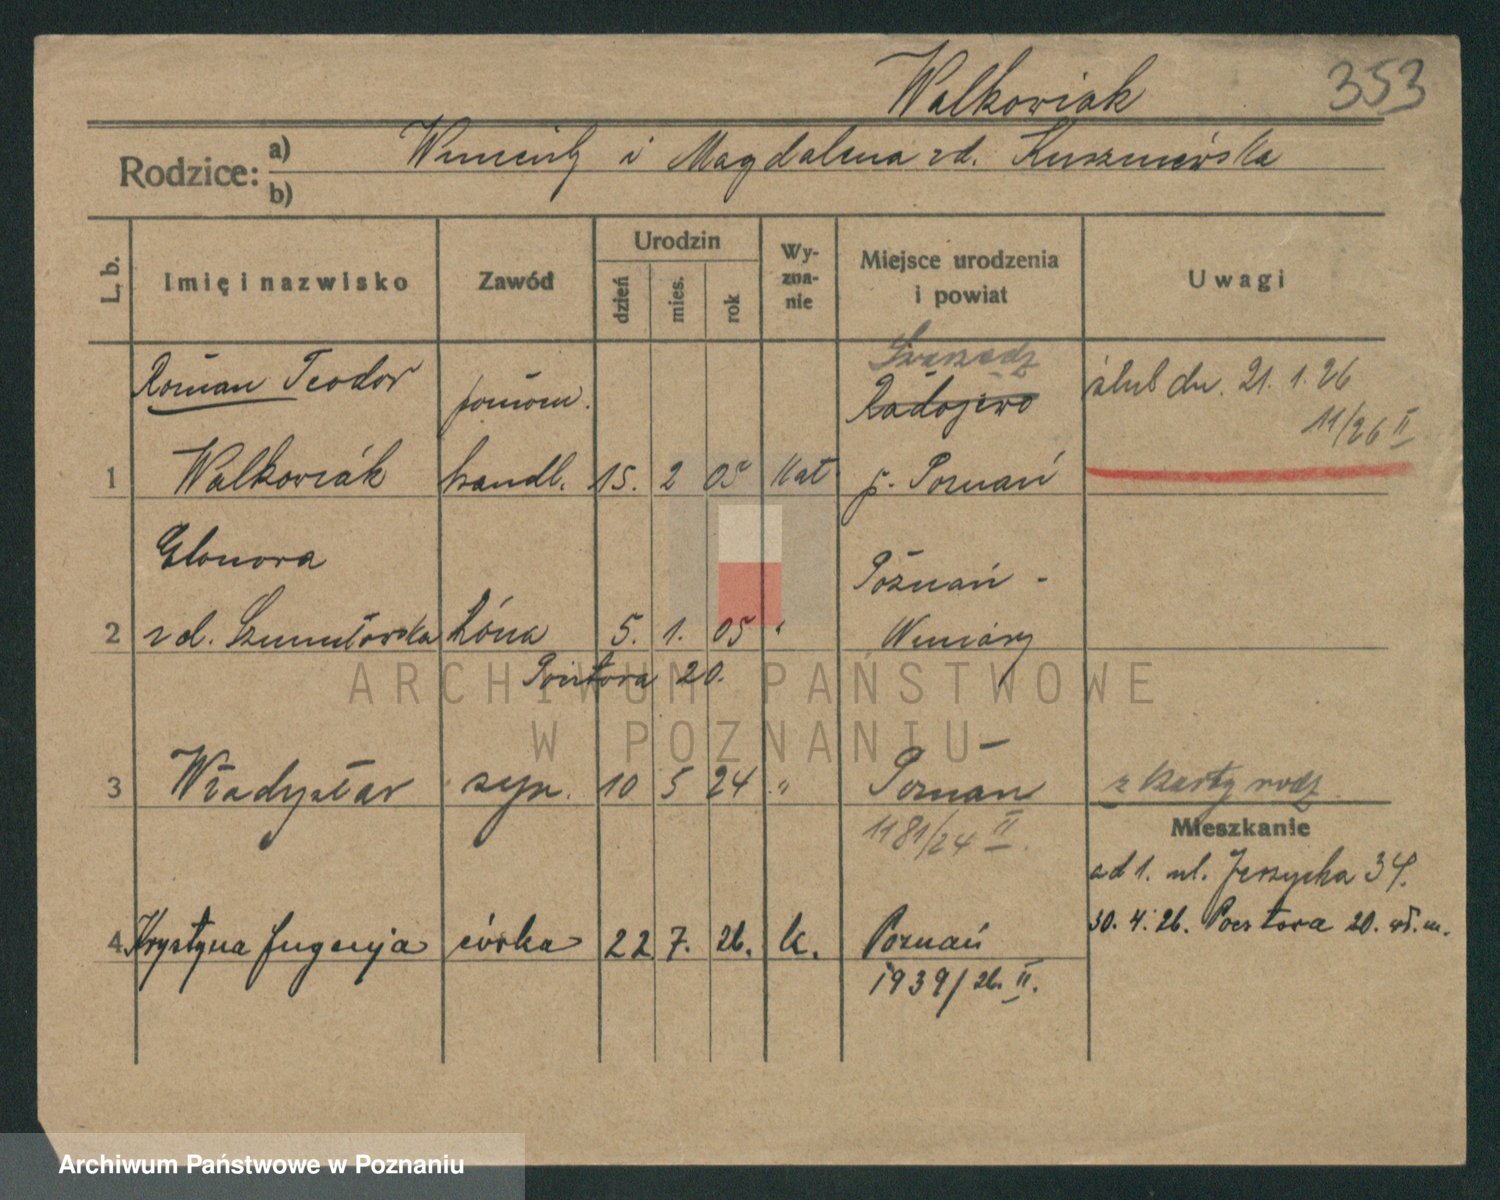 Walkowiak 353
Rodzice: a) Wincenty i Magdalena zd.
b)
L. b. Imię i nazwisko Zawód Urodzin dzień mies. rok Wy-zna-nie Miejsce urodzenia i powiat Uwagi
Swarzędz
Roman Teodor pomocn. Radojewo ślub dn. 21. 1. 26
11/26 II
1 Walkowiak handl. 15. 2 05 kat p. Poznań
Elonora Poznań -
2 zd. Szumułowska żona 5. 1. 05 " Winiary
20.
3 Władysław syn. 10 5 24 " Poznań z karty rodz.
1181/24 II.
Mieszkanie
ad 1. ul. Jerzycka 34.
4 Krystyna Eugenja córka 22 7. 26. k. Poznań 30. 4. 26. 20.
1939/26. II.
ARCHIWUM PAŃSTWOWE
W POZNANIU
Archiwum Państwowe w Poznaniu